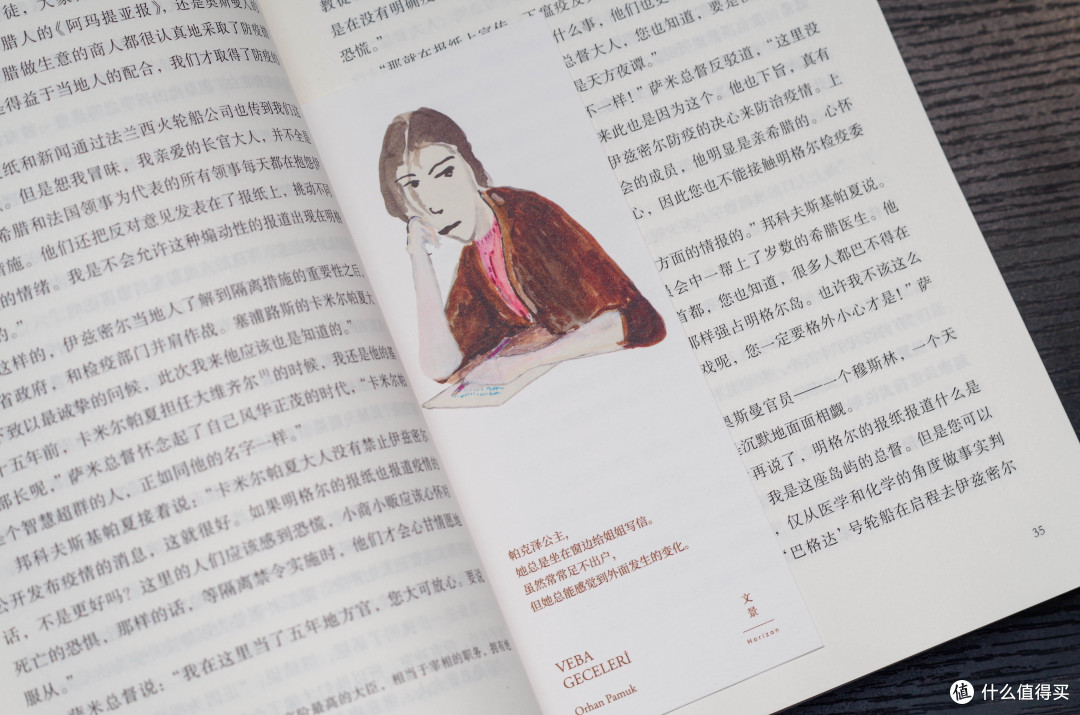 腊人的《阿玛提亚报》，还是奥斯曼人
腊做生意的商人都很认真地采取了防疫
得益于当地人的配合，我们才取得了防疫
纸和新闻通过法兰西火轮船公司也传到我们这
但是恕我冒昧，我亲爱的长官大人，并不全是
希腊和法国领事为代表的所有领事每天都在抱怨
施。他们还把反对意见发表在了报纸上，挑动不同
的情绪。我是不会允许这种煽动性的报道出现在明格
的。”
这样的，伊兹密尔当地人了解到隔离措施的重要性之后，
省政府，和检疫部门并肩作战。塞浦路斯的卡米尔帕夏大
下致以最诚挚的问候，此次我来他应该也是知道的。”
十五年前，卡米尔帕夏担任大维齐尔的时候，我还是他的基
部长呢，”萨米总督怀念起了自己风华正茂的时代，“卡米尔帕
个智慧超群的人，正如同他的名字一样。”
邦科夫斯基帕夏接着说：“卡米尔帕夏大人没有禁止伊兹密尔
公开发布疫情的消息，这就很好。如果明格尔的报纸也报道疫情的
话，不是更好吗？这里的人们应该感到恐慌，小商小贩应该心怀对
死亡的恐惧，那样的话，等隔离禁令实施时，他们才会心甘情愿地
服从。”
萨米总督说：“我在这里当了五年地方官，您大可放心。要说
最高的大臣，相当于宰相的职务，拥有绝
是在没有明确
恐慌。”
“那就在报纸上宣传
什么事，他们也
总督大人，您也知道，要是
是天方夜谭。”
不一样！”萨米总督反驳道，“这里没
来此也是因为这个。他也下旨，真有
伊兹密尔防疫的决心来防治疫情。上
会的成员，他明显是亲希腊的。心怀
心，因此您也不能接触明格尔检疫委
方面的情报的。”邦科夫斯基帕夏说。
会中一帮上了岁数的希腊医生。他
首都，您也知道，很多人都巴不得在
那样强占明格尔岛。也许我不该这么
戏呢，您一定要格外小心才是！”萨
奥斯曼官员——一个穆斯林，一个天
沉默地面面相觑。
再说了，明格尔的报纸报道什么是
我是这座岛屿的总督。但是您可以
，仅从医学和化学的角度做事实判
‘巴格达’号轮船在启程去伊兹密尔
35
帕克泽公主，
她总是坐在窗边给姐姐写信。
虽然常常足不出户，
但她总能感觉到外面发生的变化。
文
景
Horizon
VEBA
GECELERİ
Orhan Pamuk
值 什么值得买